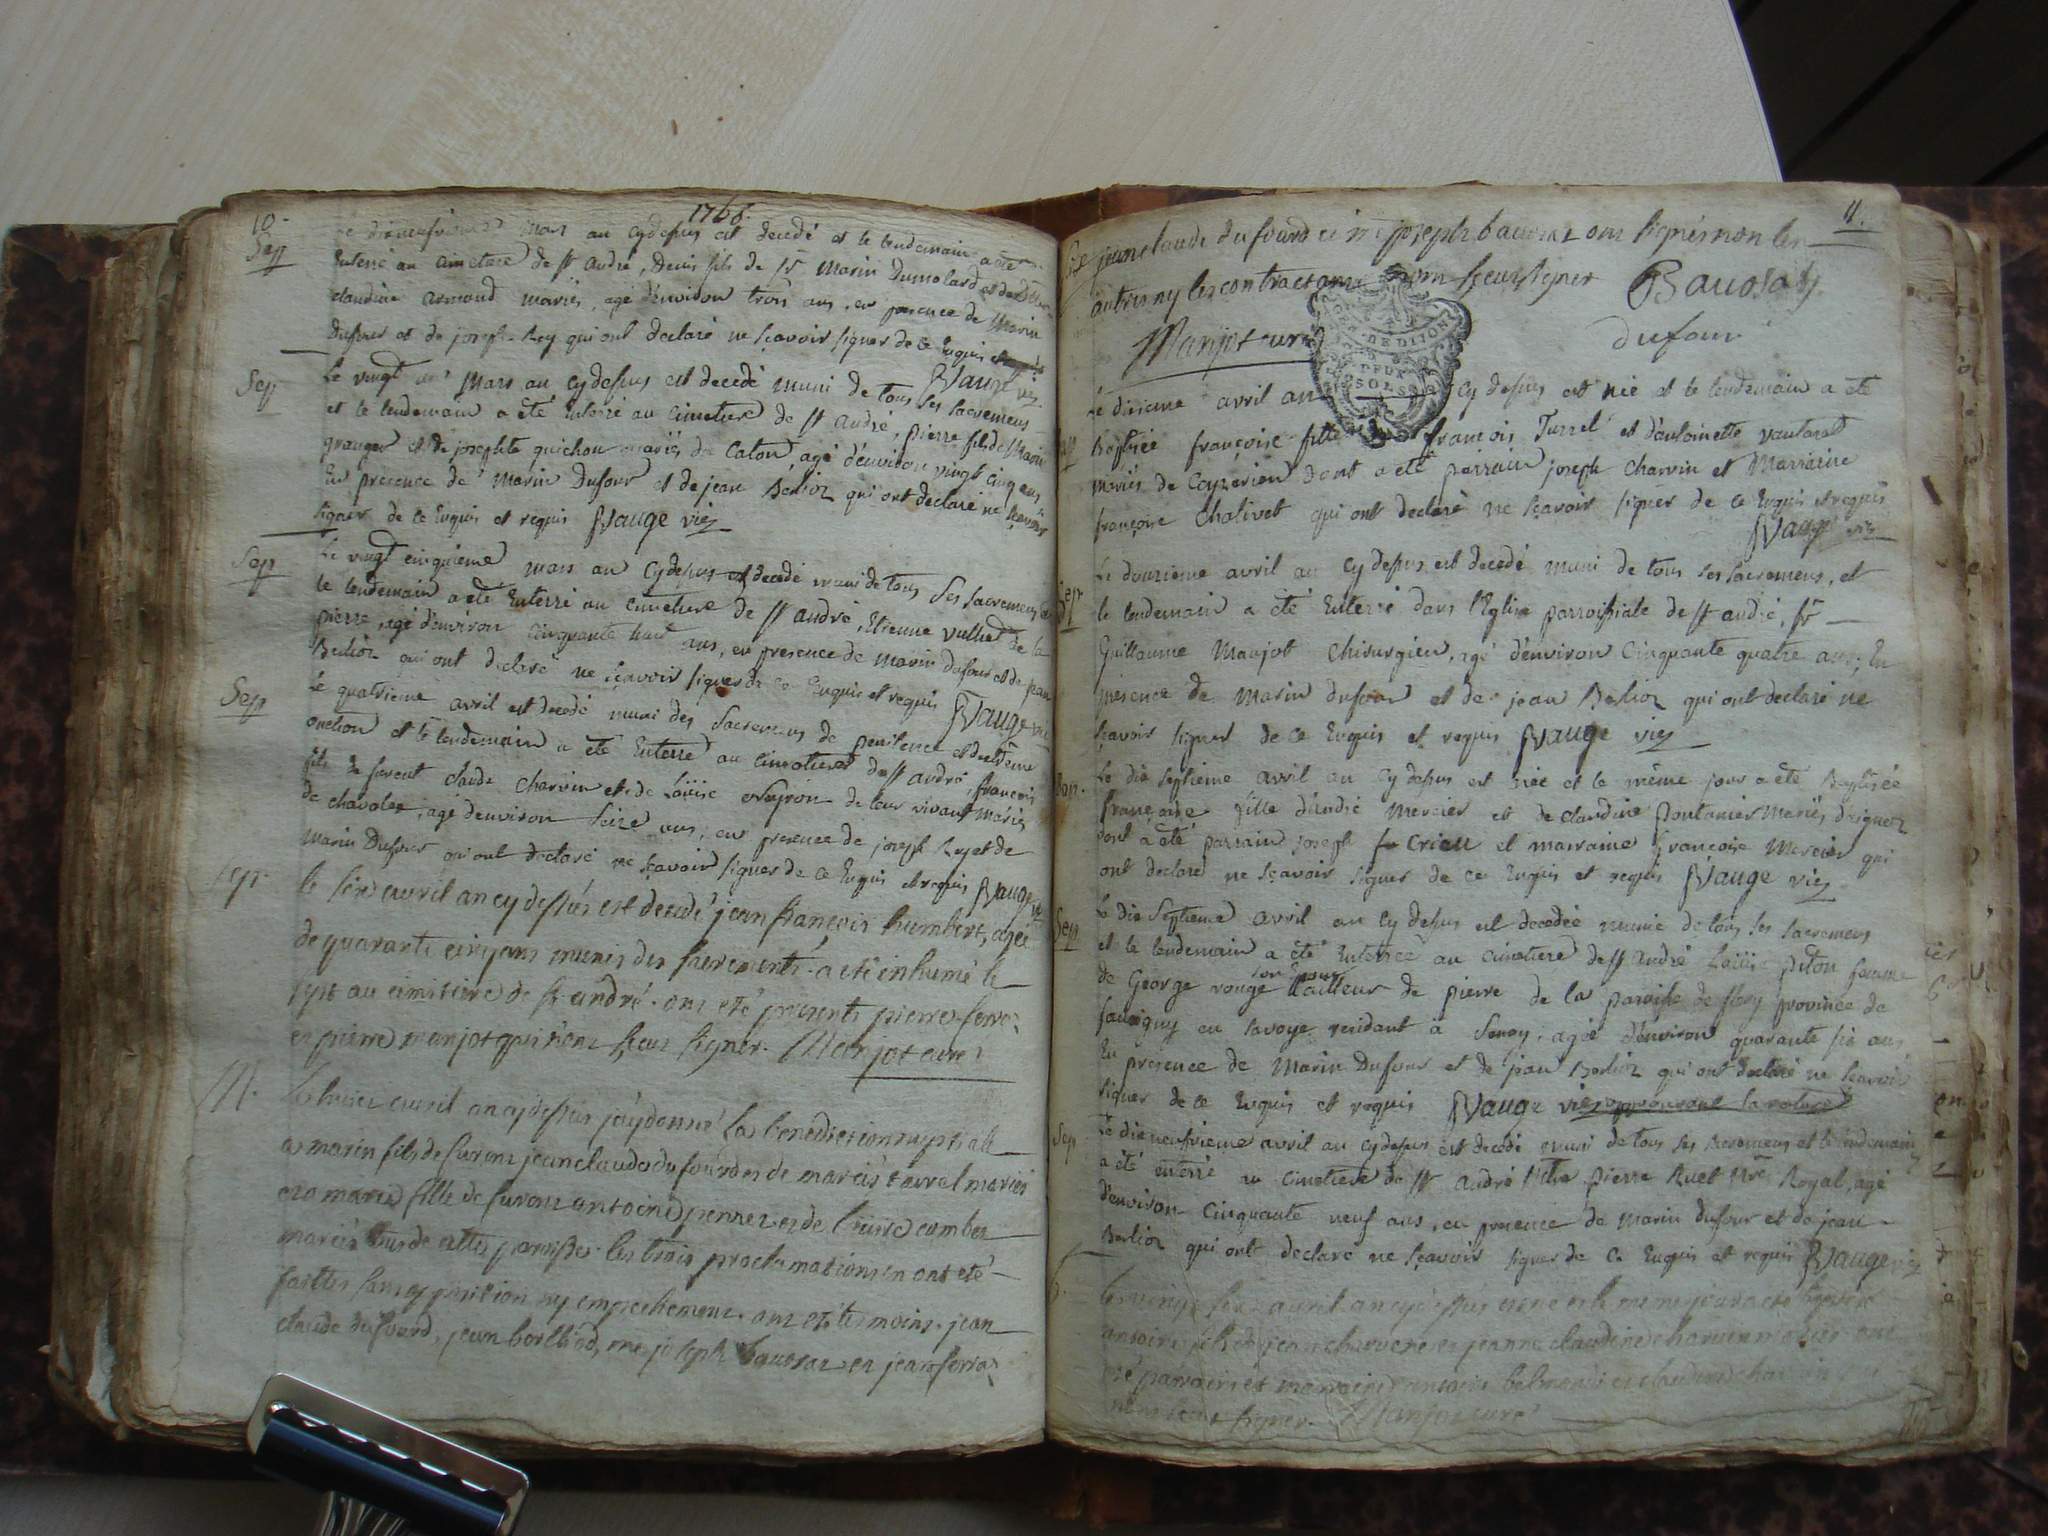 10.
1768.
Sep
Le dixneufvieme mars an cy dessus est decedé et le lendemain a eté
Enterré au cimetiere de st André, Denis fils de sr. Marin Dumolard et de
claudine armand mariés, agé d'environ trois ans, en presence de Marin
Dufour et de joseph Rey qui ont declaré ne sçavoir signer de ce Enquis
Vauge vic
Sep
Le vingt mars an cy dessus est decedé muni de tous ses sacremens
et le lendemain a été Enterré au cimetiere de st André, pierre fils de Marin
granger et de josephte guichon mariés de Caton, agé d'environ vingt cinq ans
En presence de Marin Dufour et de jean Berlioz qui ont declaré ne sçavoir
signer de ce Enquis et requis Vauge vic
Sep
Le vingt cinquieme mars an cy dessus est decedé muni de tous ses sacremens et
le lendemain a eté Enterré au cimetiere de st André, Etienne vulliet de la
pierre, agé d'environ cinquante huit ans, en presence de Marin dufour et de jean
Berlioz qui ont declaré ne sçavoir signer de ce Enquis et requis Vauge vic
Sep
Le quatrieme avril est decedé muni des sacremens de penitence et d'extrême
onction et le lendemain a eté Enterré au cimetiere de st André, françois
fils de savent claude charvin et de Loüise Neyron de leur vivant mariés
de chavolée, agé d'environ seize ans, en presence de joseph Rey et de
Marin Dufour qui ont declaré ne sçavoir signer de ce Enquis et requis Vauge vic
Sep.
le six avril an cy dessus est decedé jean françois humbert, agée
de quarante cinq ans munis des sacrements. a eté inhumé le
sept au cimitiere de st andré. ont eté presents pierre ferra
et pierre manjot qui n'ont sceus signer. Manjot curé
M.
le huict avril an cy dessus j'ay donné la benediction nuptiale
a marin fils de furent jean claude du fourd et de marcis tavvel mariés
et a marie fille de furent antoine pernet et de loüise cumbet
mariés tous de cette paroisse. les trois proclamations en ont eté
faittes sans opposition ny empechement. ont eté temoins. jean
claude dufourd, jean borlliod, me joseph bauosat et jean ferra
11.
jean claude dufourd et me joseph bauosat ont signés non les
autres ny les contractants pour sceus signer Bauosat
Manjot curé
dufour
DEUX
SOLS
Le dixieme avril an cy dessus est née et le lendemain a eté
Baptisée françoise fille de françois Turrel et d'antoinette vautaret
mariés de Ceyzerieu dont a eté parrain joseph charvin et Marraine
françoise Chalivet qui ont declaré ne sçavoir signer de ce Enquis et requis
Vauge vic
Sep
Le douzieme avril an cy dessus est decedé muni de tous ses sacremens, et
le lendemain a été Enterré dans l'Eglise parroissiale de st andré, sr
Guillaume Manjot chirurgien, agé d'environ cinquante quatre ans; En
presence de Marin dufour et de jean Berlioz qui ont declaré ne
sçavoir signer de ce Enquis et requis Vauge vic
Bap.
Le dix septieme avril an cy dessus est née et le même jour a eté Baptisée
françoise fille d'andré mercier et de claudine Pontanier mariés d'aignoz
dont a été parrain joseph Crieu et marraine françoise Mercier qui
ont declaré ne sçavoir signer de ce Enquis et requis Vauge vic
Sep
Le dix septieme avril an cy dessus est decedée munie de tous ses sacremens
et le lendemain a été Enterrée au cimetiere de st André Loüise piton femme
de George rouge tailleur de pierre de la paroisse de province de
faucigny en savoye residant à Senoy, agée d'environ quarante six ans
En presence de Marin Dufour et de jean Berlioz qui ont declaré ne sçavoir
signer de ce Enquis et requis Vauge vic approuvant la rature
Sep
Le dixneufvieme avril an cy dessus est decedé muni de tous ses sacremens et le lendemain
a été enterré au cimetiere de st André Me pierre Ruet Nre Royal, agé
d'environ cinquante neuf ans, en presence de Marin dufour et de jean
Berlioz qui ont declaré ne sçavoir signer de ce Enquis et requis Vauge vic
le vingt avril an cy dessus est né et le meme jour a eté baptisé
antoine fils de jean et jeanne claudine charvin mariés ont
eté parrain et marraine antoine et claudine
n'ont sceus signer. Manjot curé